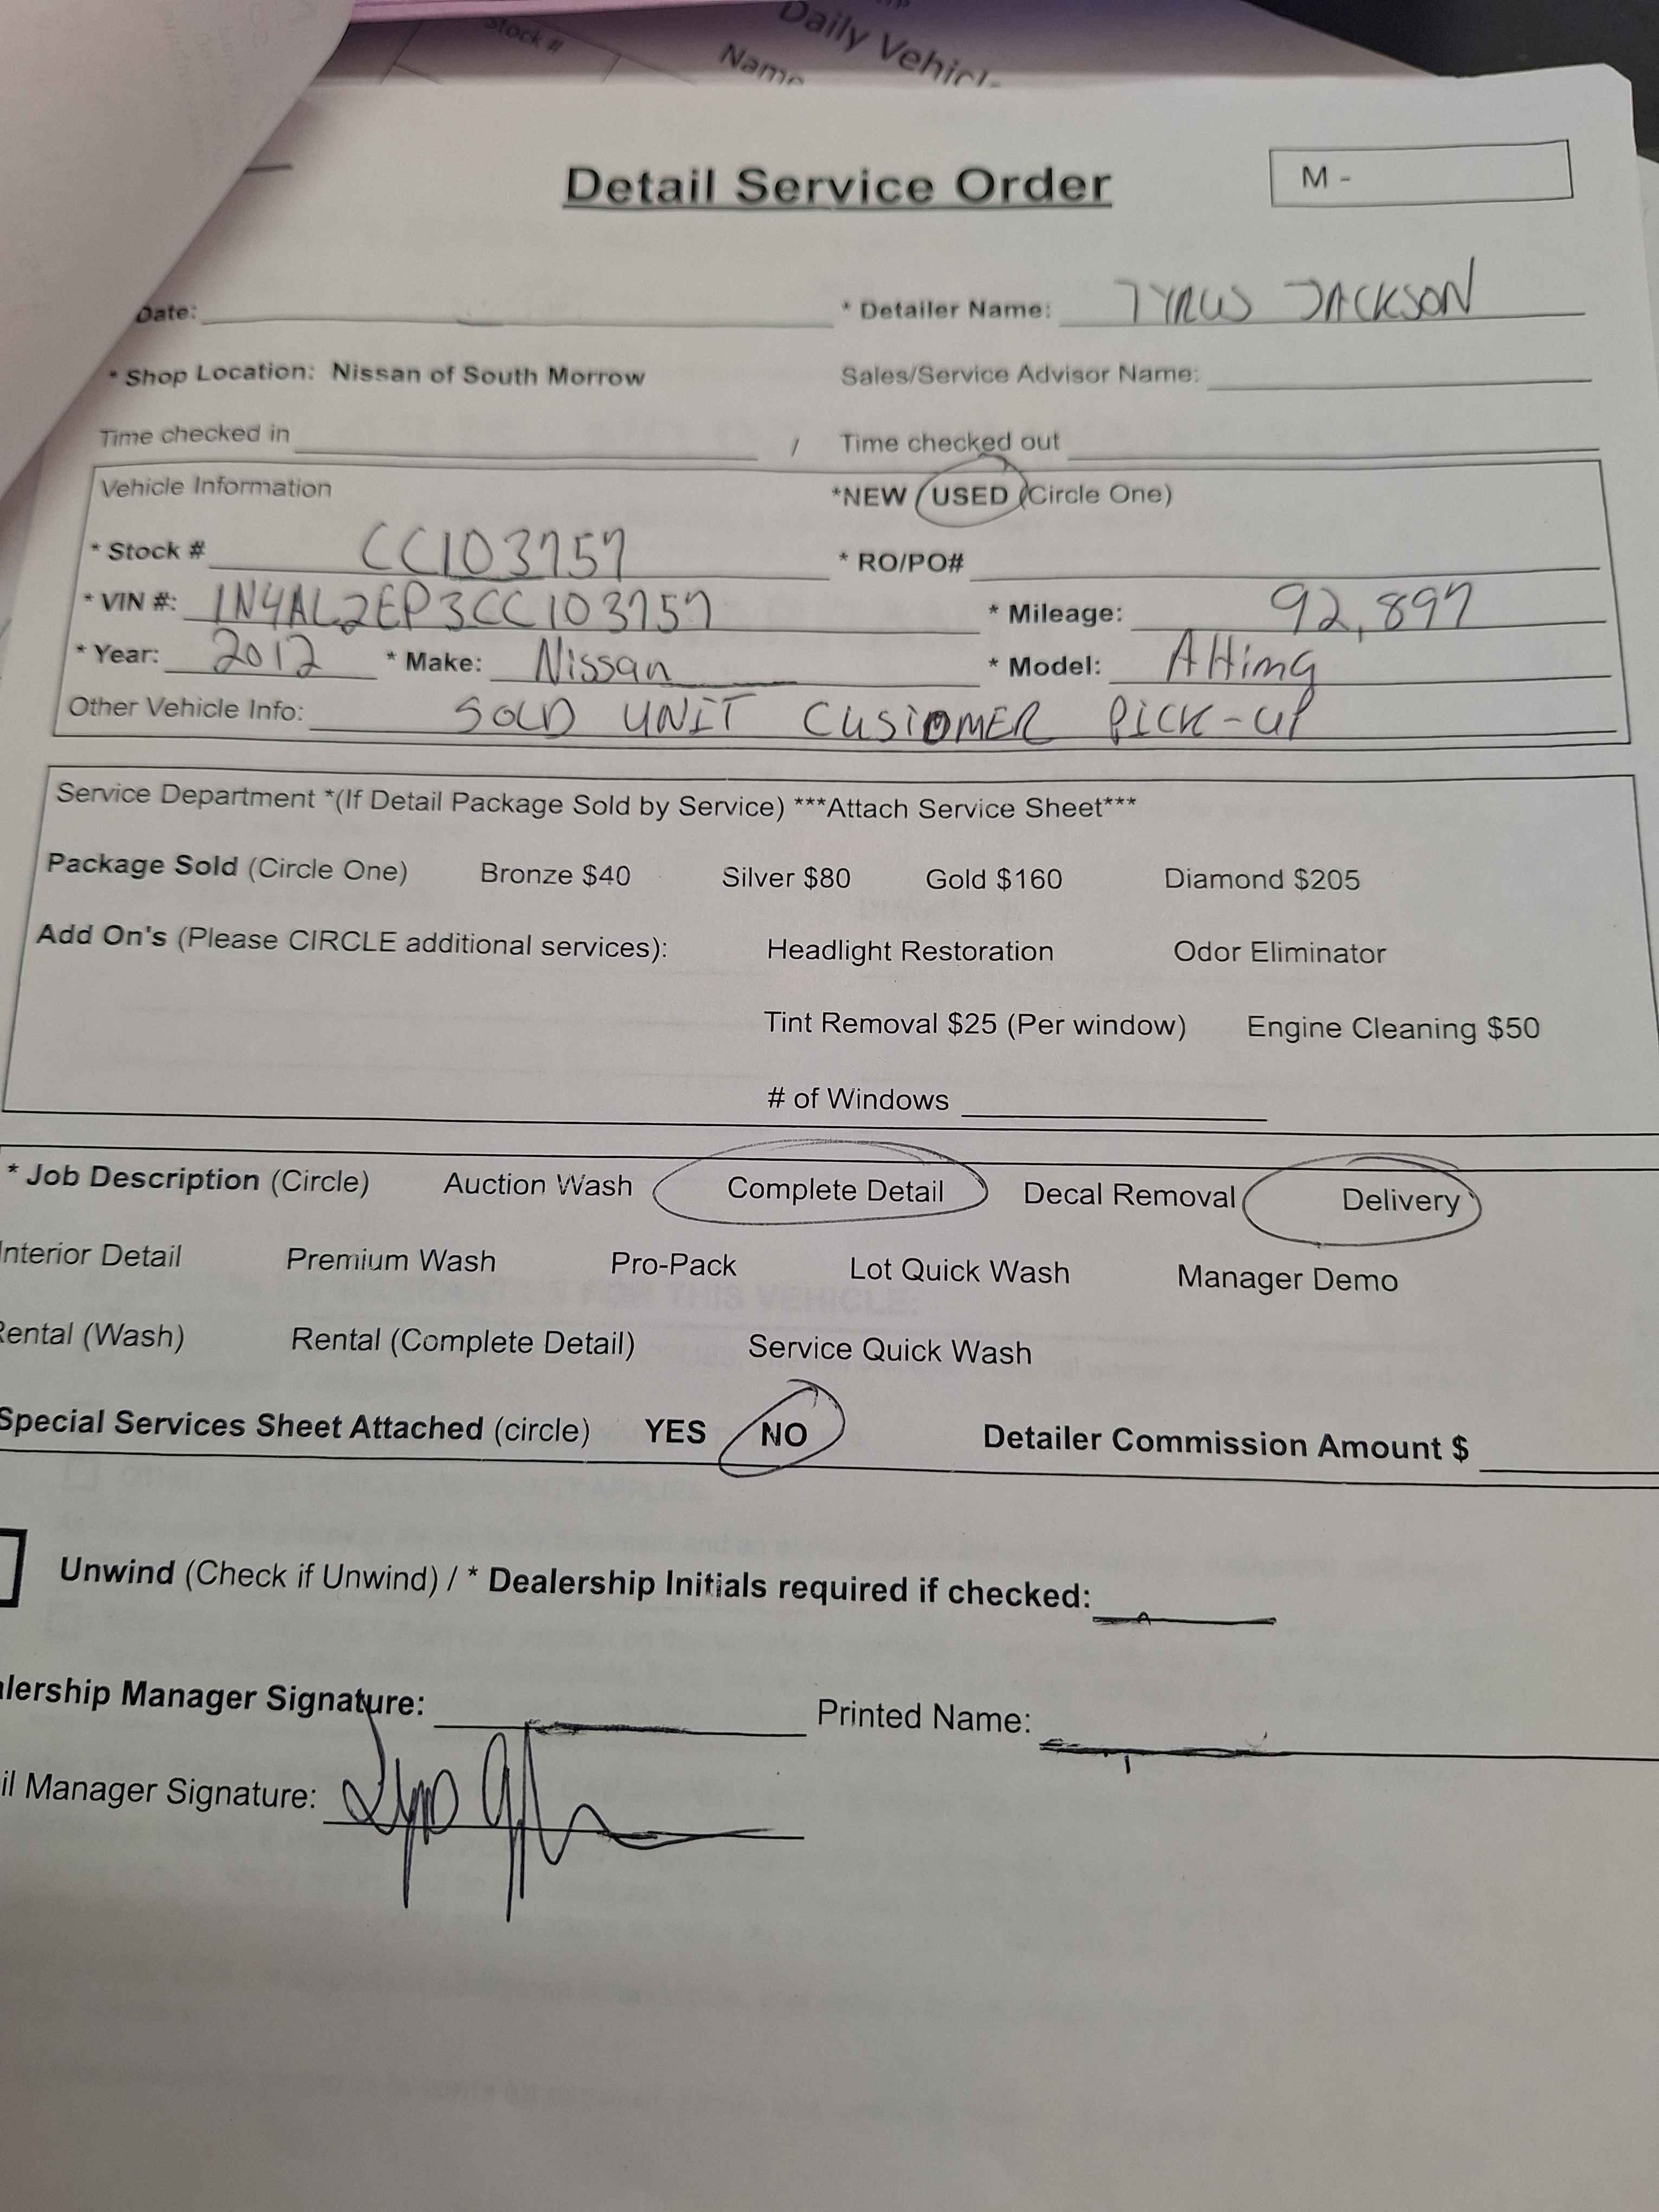 Stock #
Daily Vehicl
Name
Detail Service Order
M -
Date:
* Detailer Name: TYRUS JACKSON
* Shop Location: Nissan of South Morrow
Sales/Service Advisor Name:
Time checked in / Time checked out
Vehicle Information
*NEW / USED (Circle One)
* Stock # CC103757
* RO/PO#
* VIN #: 1N4AL2EP3CC103757
* Mileage: 92,897
* Year: 2012 * Make: Nissan * Model: Altima
Other Vehicle Info: SOLD UNIT CUSTOMER PICK-UP
Service Department *(If Detail Package Sold by Service) ***Attach Service Sheet***
Package Sold (Circle One) Bronze $40 Silver $80 Gold $160 Diamond $205
Add On's (Please CIRCLE additional services): Headlight Restoration Odor Eliminator
Tint Removal $25 (Per window) Engine Cleaning $50
# of Windows
* Job Description (Circle) Auction Wash Complete Detail Decal Removal Delivery
Interior Detail Premium Wash Pro-Pack Lot Quick Wash Manager Demo
Rental (Wash) Rental (Complete Detail) Service Quick Wash
Special Services Sheet Attached (circle) YES NO Detailer Commission Amount $
Unwind (Check if Unwind) / * Dealership Initials required if checked:
alership Manager Signature: Printed Name:
il Manager Signature: